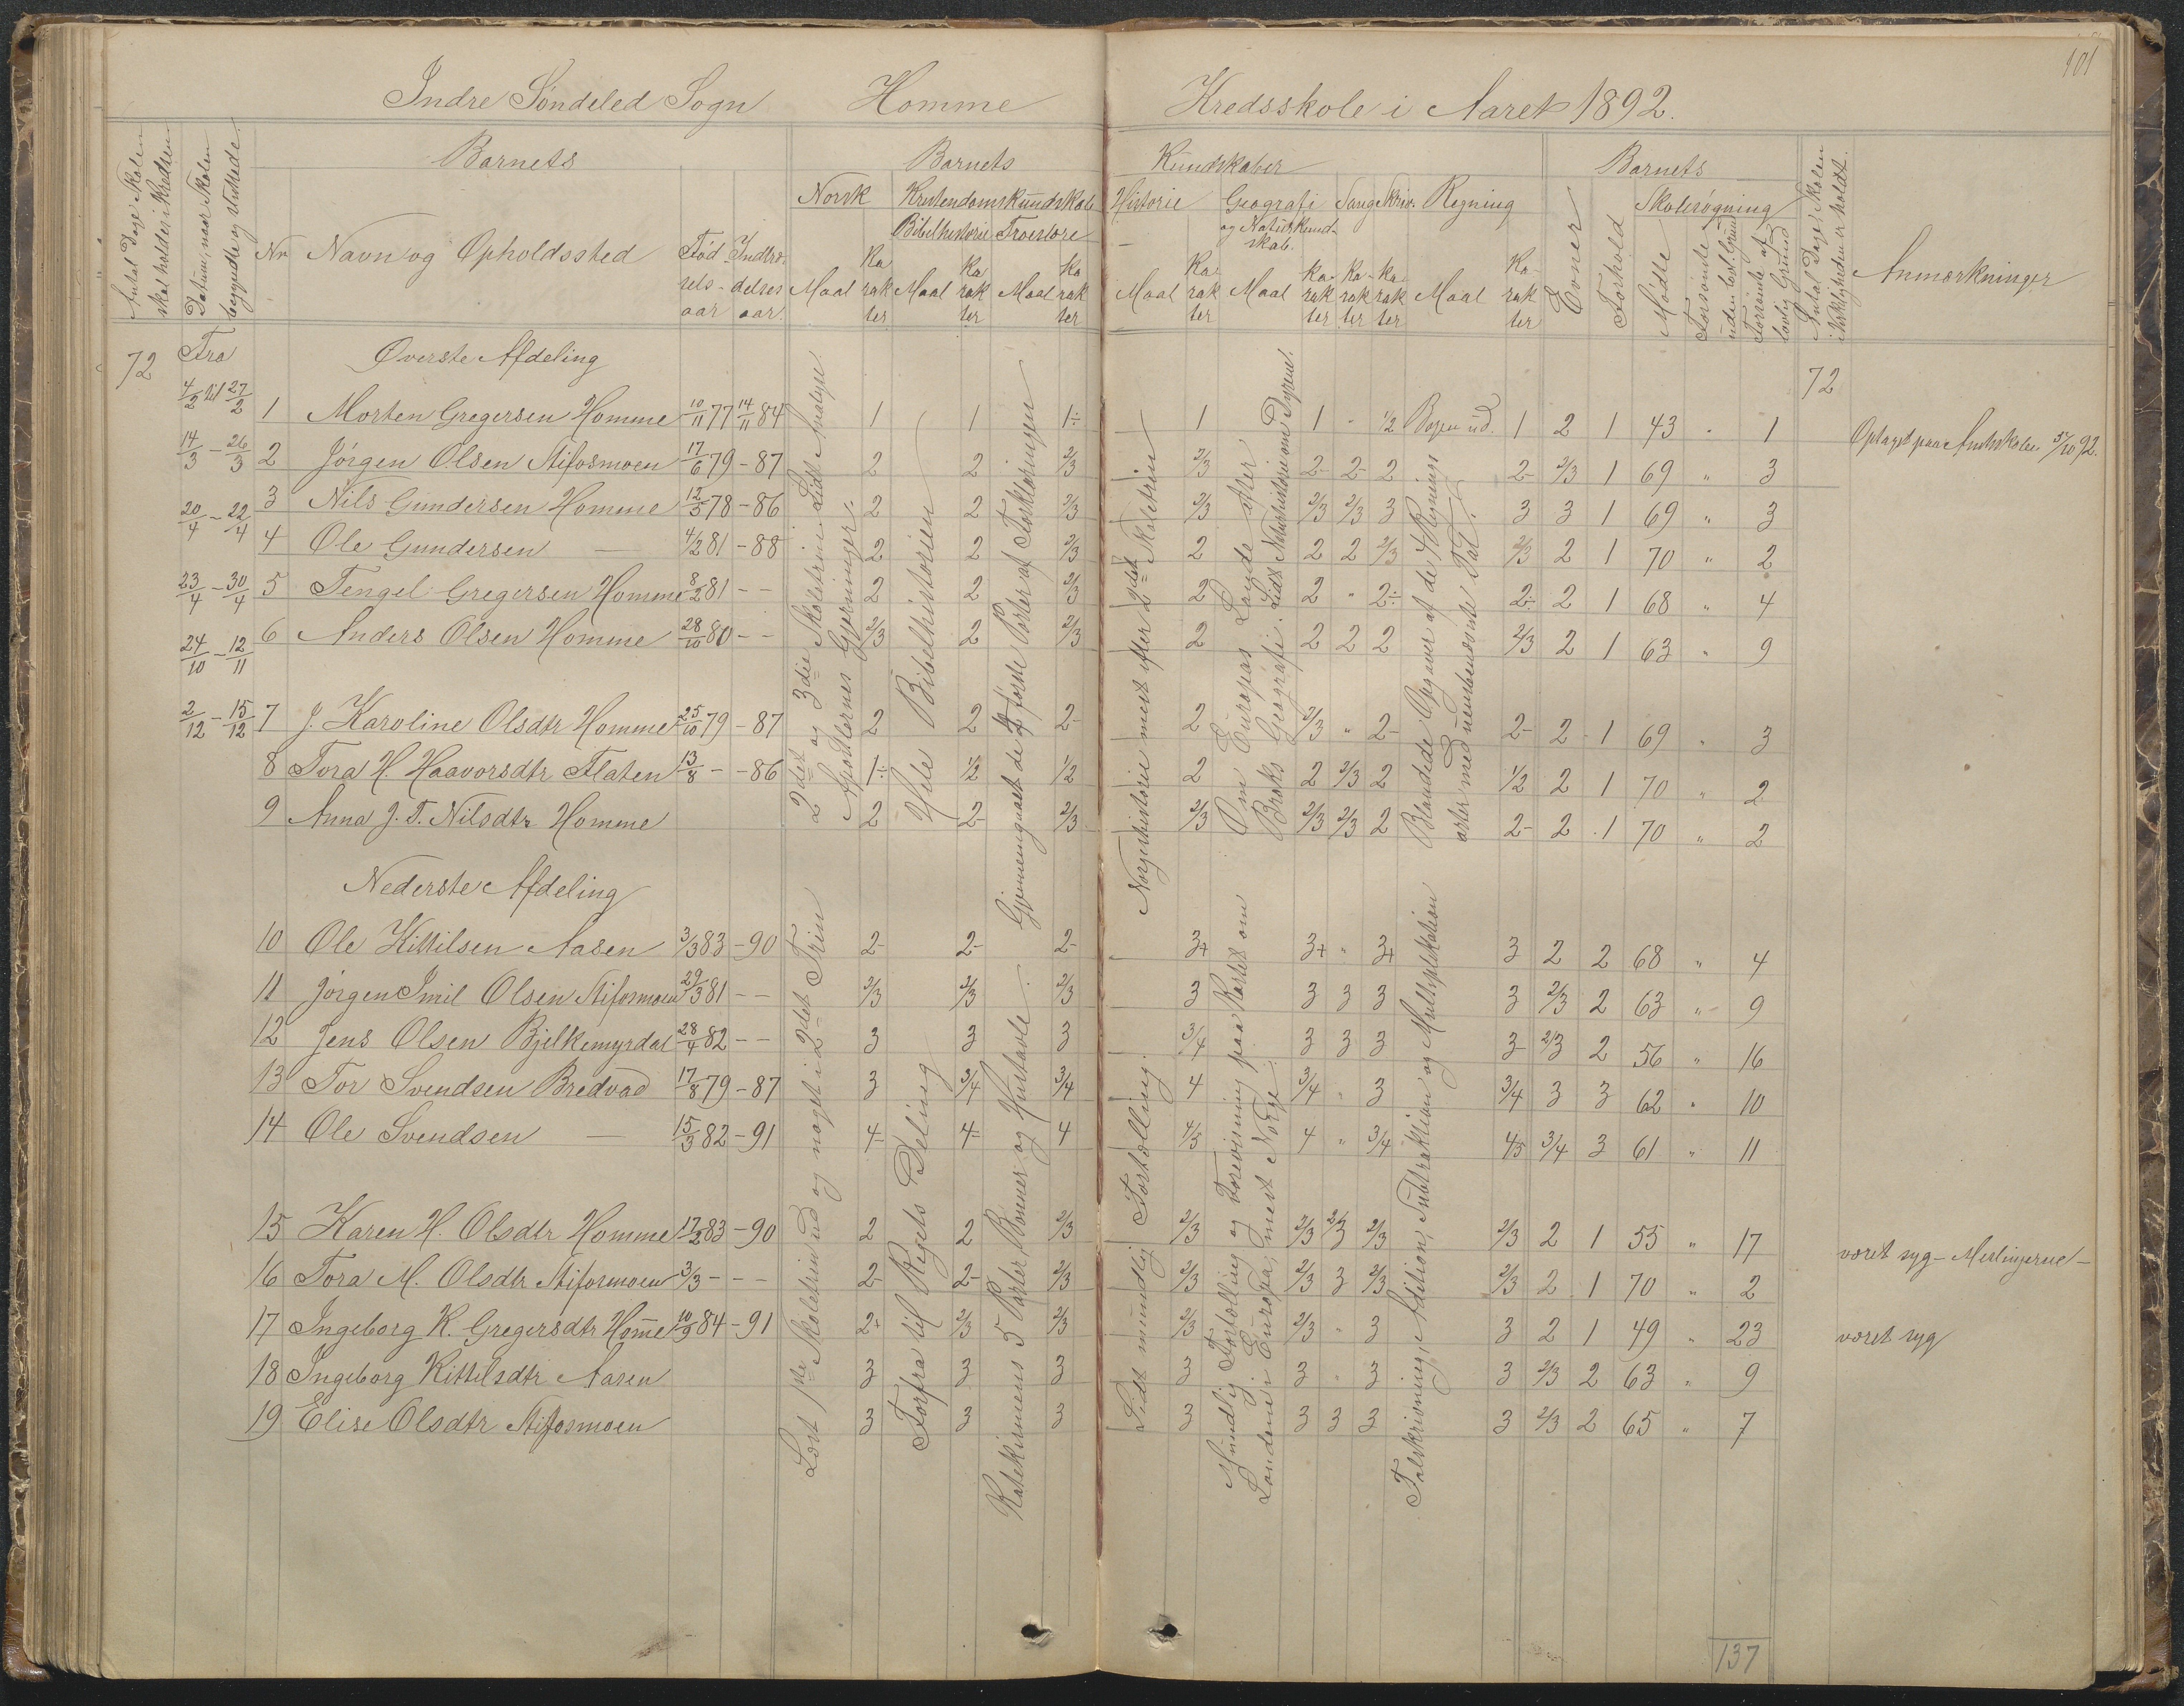 101
Indre Söndeled Sogn Homme Kredsskole i Aaret 1892.
Antal Dage Skolen skal holdes i Kredsen
Datum, naar Skolen begyndte og sluttede.
Barnets
Nr Navn og Opholdssted Fødselsaar Indtrædelsesaar.
Barnets Kundskaber
Norsk Kristendomskundskab Historie Geografi og Naturkundskab. Sang Skriv. Regning
Bibelhistorie Troeslære
Maal Karakter Maal Karakter Maal Karakter Maal Karakter Maal Karakter Karakter Karakter Maal Karakter
Barnets
Evner Forhold Skolesøgning
Mødte Forsømte uden lovl. Grund Forsømte af lovlig Grund
Antal Dage Skolen i Virkeligheden er holdt.
Anmærkninger
72 Fra Øverste Afdeling 72
4/2 til 27/2 1 Morten Gregersen Homme 10/11 77 14/11 84 1 1 1÷ 1 1 " 1/2 Bogen ud. 1 2 1 43 " 1
14/3 – 26/3 2 Jörgen Olsen Stifosmoen 17/6 79 – 87 2 2 2/3 2/3 2- 2- 2 2- 2/3 1 69 " 3
3 Nils Gundersen Homme 12/5 78 – 86 2 2 2/3 2/3 2/3 2/3 3 3 3 1 69 " 3
20/4 – 22/4 4 Ole Gundersen — 4/2 81 – 88 2 2 2/3 2 2 2 2/3 2/3 2 1 70 " 2
23/4 – 30/4 5 Tengel Gregersen Homme 8/2 81 – – 2 2 2/3 2 2 " 2÷ 2÷ 2 1 68 " 4
24/10 – 12/11 6 Anders Olsen Homme 28/10 80 – – 2/3 2 2/3 2 2 2 2 2/3 2 1 63 " 9
2/12 – 15/12 7 J. Karoline Olsdtr Homme 25/10 79 – 87 2 2 2- 2 2/3 " 2- 2- 2 1 69 " 3
8 Tora H. Haavorsdtr Flaten 13/8 – – 86 1÷ 1/2 1/2 2 2 2/3 2 1/2 2 1 70 " 2
9 Anna J. T. Nilsdtr Homme 2 2- 2/3 2/3 2/3 2/3 2 2- 2 1 70 " 2
2det og 3die Skoletrin. Lidt Analyse.
Apostlernes Gjerninger.
Hele Bibelhistorien
Gjennemgaaet de 4 første Parter af Forklaringen
Norgeshistorie mest efter 2det Skoletrin
Om Europas Lande efter
Broks Geografi. Lidt Naturhistorie om Dyrene.
Blandede Opgaver af de 4 Regnings
arter med uensbenævnte Tal.
Nederste Afdeling
10 Ole Kittilsen Aasen 3/3 83 – 90 2- 2- 2- 3+ 3+ " 3+ 3 2 2 68 " 4
11 Jörgen Imil Olsen Stifosmoen 29/3 81 – – 2/3 2/3 2/3 3 3 3 3 3 2/3 2 63 " 9
12 Jens Olsen Bjelkemyrdal 28/4 82 – – 3 3 3 3/4 3 3 3 3- 2/3 2 56 " 16
13 Tor Svendsen Bredvad 17/8 79 – 87 3 3/4 3/4 4 3/4 " 3 3/4 3 3 62 " 10
14 Ole Svendsen — 15/3 82 – 91 4- 4- 4 4/5 4 " 3/4 4/5 3/4 3 61 " 11
15 Karen H. Olsdtr Homme 17/2 83 – 90 2 2 2/3 2/3 2/3 2/3 2/3 2/3 2 1 55 " 17 været syg – Meslingerne –
16 Tora M. Olsdtr Stifosmoen 3/3 – – – 2- 2- 2/3 2/3 2/3 3 2/3 2/3 2 1 70 " 2
17 Ingeborg K. Gregersdtr Hom̄e 10/9 84 – 91 2+ 2/3 2/3 2/3 2/3 " 3 3 2 1 49 " 23 været syg
18 Ingeborg Kittilsdtr Aasen 3 3 3 3 3 " 3 3 2/3 2 63 " 9
19 Elise Olsdtr Stifosmoen 3 3 3 3 3 3 3 3 2/3 2 65 " 7
Læst 1ste Skoletrin ud og noget i 2det Trin
Forfra til Rigets Deling
Katekismens 5 Parter, Bønner og Hustavle.
Lidt mundtlig Fortælling.
Mundtlig Fortælling og Forevisning paa Kartet om
Landene i Europa, mest Norge.
Talskrivning, Addition, Subtraktion og Multiplikation
137